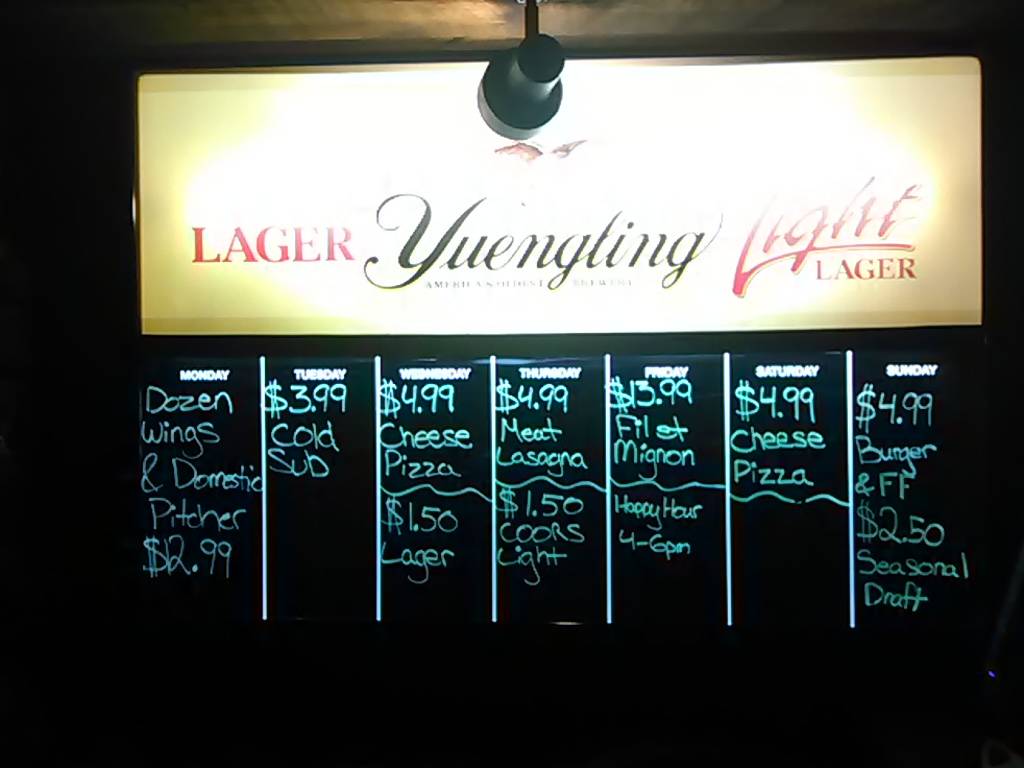 LAGER Yuengling Light
AMERICA'S OLDEST BREWERY LAGER
MONDAY
Dozen
Wings
& Domestic
Pitcher
$12.99
TUESDAY
$3.99
Cold
Sub
WEDNESDAY
$4.99
Cheese
Pizza
$1.50
Lager
THURSDAY
$4.99
Meat
Lasagna
$1.50
COORS
Light
FRIDAY
$13.99
Filet
Mignon
Happy Hour
4-6pm
SATURDAY
$4.99
Cheese
Pizza
SUNDAY
$4.99
Burger
& FF
$2.50
Seasonal
Draft